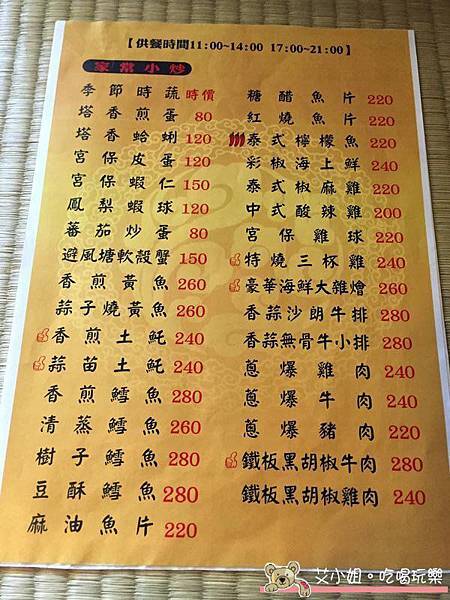 【供餐時間11:00~14:00 17:00~21:00】
家常小炒
季節時蔬時價
塔香煎蛋 80
塔香蛤蜊 120
宮保皮蛋 120
宮保蝦仁 150
鳳梨蝦球 120
蕃茄炒蛋 80
避風塘軟殼蟹 150
香煎黃魚 260
蒜子燒黃魚 260
香煎土魠 240
蒜苗土魠 240
香煎鱈魚 280
清蒸鱈魚 260
樹子鱈魚 280
豆酥鱈魚 280
麻油魚片 220
糖醋魚片 220
紅燒魚片 220
泰式檸檬魚 220
彩椒海上鮮 240
泰式椒麻雞 220
中式酸辣雞 200
宮保雞球 220
特燒三杯雞 240
豪華海鮮大雜燴 260
香蒜沙朗牛排 280
香蒜無骨牛小排 280
蔥爆雞肉 240
蔥爆牛肉 240
蔥爆豬肉 220
鐵板黑胡椒牛肉 280
鐵板黑胡椒雞肉 240
艾小姐。吃喝玩樂